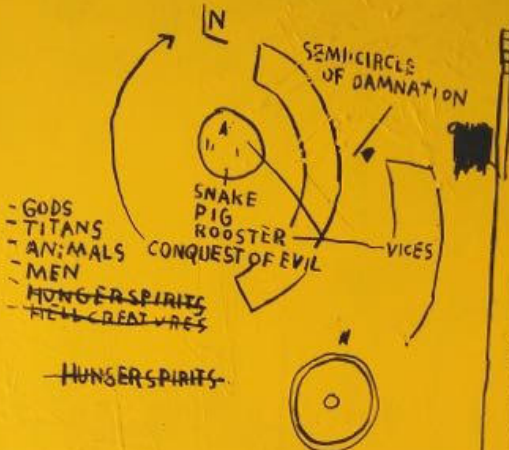 N
SEMICIRCLE
OF DAMNATION
SNAKE
PIG
ROOSTER
VICES
CONQUEST OF EVIL
- GODS
- TITANS
- ANIMALS
- MEN
- HUNGERSPIRITS
- HELLCREATURES
HUNGERSPIRITS